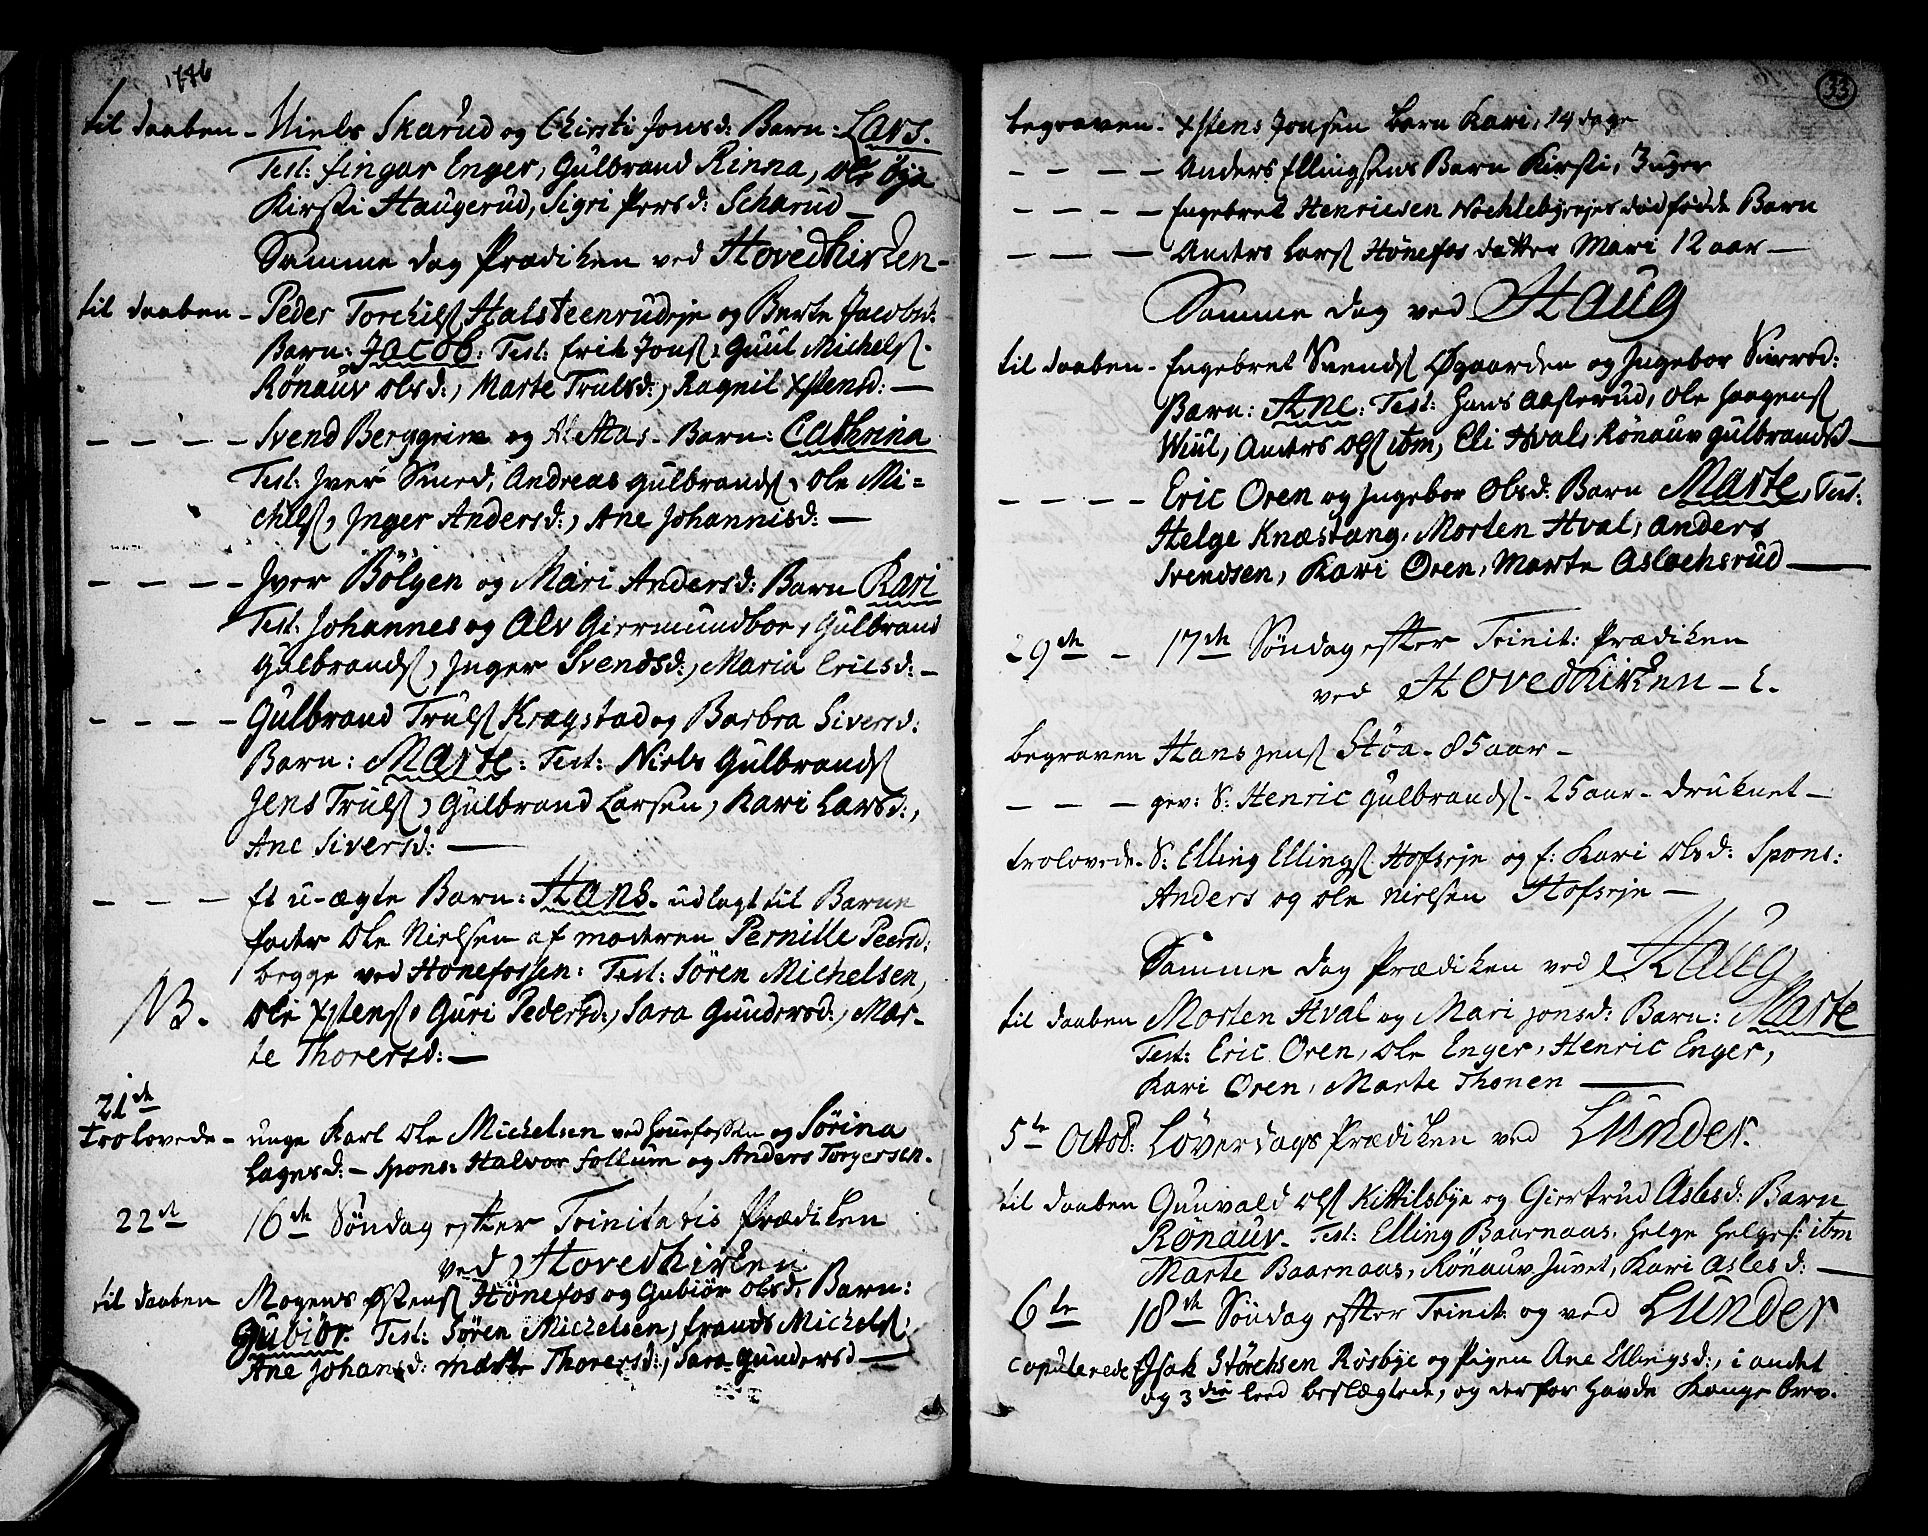 1746
til daaben - Niels Skarud og Chirsti Jonsd: Barn: Lars.
Test: fingar Enger, Gulbrand Rinna, Ole Øya
Kirsti Haugerud, Sigri Persd: Scharud —
Samme dag Prædiken ved Hovedkirken -
til daaben - Peder Torchilss Halsteenrudeje og Berte Jacobsd:
Barn: Jacob: Test: Erik Jonss, Guul Michelss.
Rønauv Olsd:, Marte Trulsd:, Ragnil Xstensd: —
— — — Svend Berggrim og Aas - Barn: Cathrina
Test: Jver Smed, Andreas Gulbrandss, Ole Mi=
chelss, Jnger Andersd:, Ane Johannisd: —
— — — Jver Bölgen og Mari Andersd: Barn Kari
Test: Johannes og Alv Giermundboe, Gulbrand
Gulbrandss, Jnger Svendsd:, Maria Ericsd: -
— — — Gulbrand Trulss Kragstad og Barbra Siversd:
Barn: Marte: Test: Niels Gulbrandss
Jens Trulss, Gulbrand Larsen, Kari Larsd:,
Ane Siversd: —
— — — Et u-ægte Barn: Hans. udlagt til Barne
fader Ole Nielsen af moderen Pernille Peersd:
begge ved Hönefossen: Test: Sören Michelsen,
NB. Ole Xstenss, Guri Pedersd:, Sara Gundersd:, Mar-
te Thorersd: —
21de
trolovede - unge Karl Ole Michelsen ved Hönefossen og Sørina
Lagesd: - Spons: Halvor Follum og Anders Torgersen.
22de 16de Søndag efter Trinitatis Prædiken
ved Hovedkirken
til daaben Mogens Østenss Hönefos og Gubiör Olsd. Barn:
Gubiör. Test: Sören Michelsen, Frands Michelss:
Ane Johansd: Marte Thorersd:, Sara Gundersd —
33
begraven - Xstens Jonsen barn Kari, 14 dage
— — — — Anders Ellingsens Barn Kirsti, 3 uger
— — — — Engebret Henricsen Nochlebyeejes dödfödde Barn
— — — Anders Larss Hönefos datter Mari 12 aar —
Samme dag ved Haug
til daaben - Engebret Svendss Øgaarden og Jngebor Siversd:
Barn: Ane: Test: Hans Aasterud, Ole Haagenss
Wiul, Anders Olss ibm, Eli Hval, Rönauv Gulbrandsd —
— — — — Eric Oren og Jngebor Olsd: Barn Marte, Test:
Helge Knæstang, Morten Hval, Anders
Svendsen, Kari Oren, Marte Aslachsrud —
29de - 17de Søndag efter Trinit: Prædiken
ved Hovedkirken -
begraven Hans Jenss Stöa - 85 aar -
— — — gev: S: Henric Gulbrandss - 25 aar - druknet —
trolovede - S: Elling Ellingss Hofseje og f: Kari Olsd: Spons:
Anders og Ole Nielsen Hofseje —
Samme dag Prædiken ved Haug
til daaben Morten Hval og Mari Jonsd: Barn: Marte
Test: Eric Oren, Ole Enger, Henric Enger,
Kari Oren, Marte Thonen —
5te Octob: Löverdags Prædiken ved Lunder.
til daaben Gunvald Olss Kittilsbye og Giertrud Aslesd: Barn
Rönauv. Test: Elling Baarnaas, Helge Helgess: ibm
Marte Baarnaas, Rönauv Juvet, Kari Aslesd: —
6te 18de Søndag efter Trinit: og ved Lunder
copulerede Jsak Störchsen Røsbye og Pigen Ane Ellingsd:, i andet
og 3die leed beslægtede, og derfor havde Konge brev.